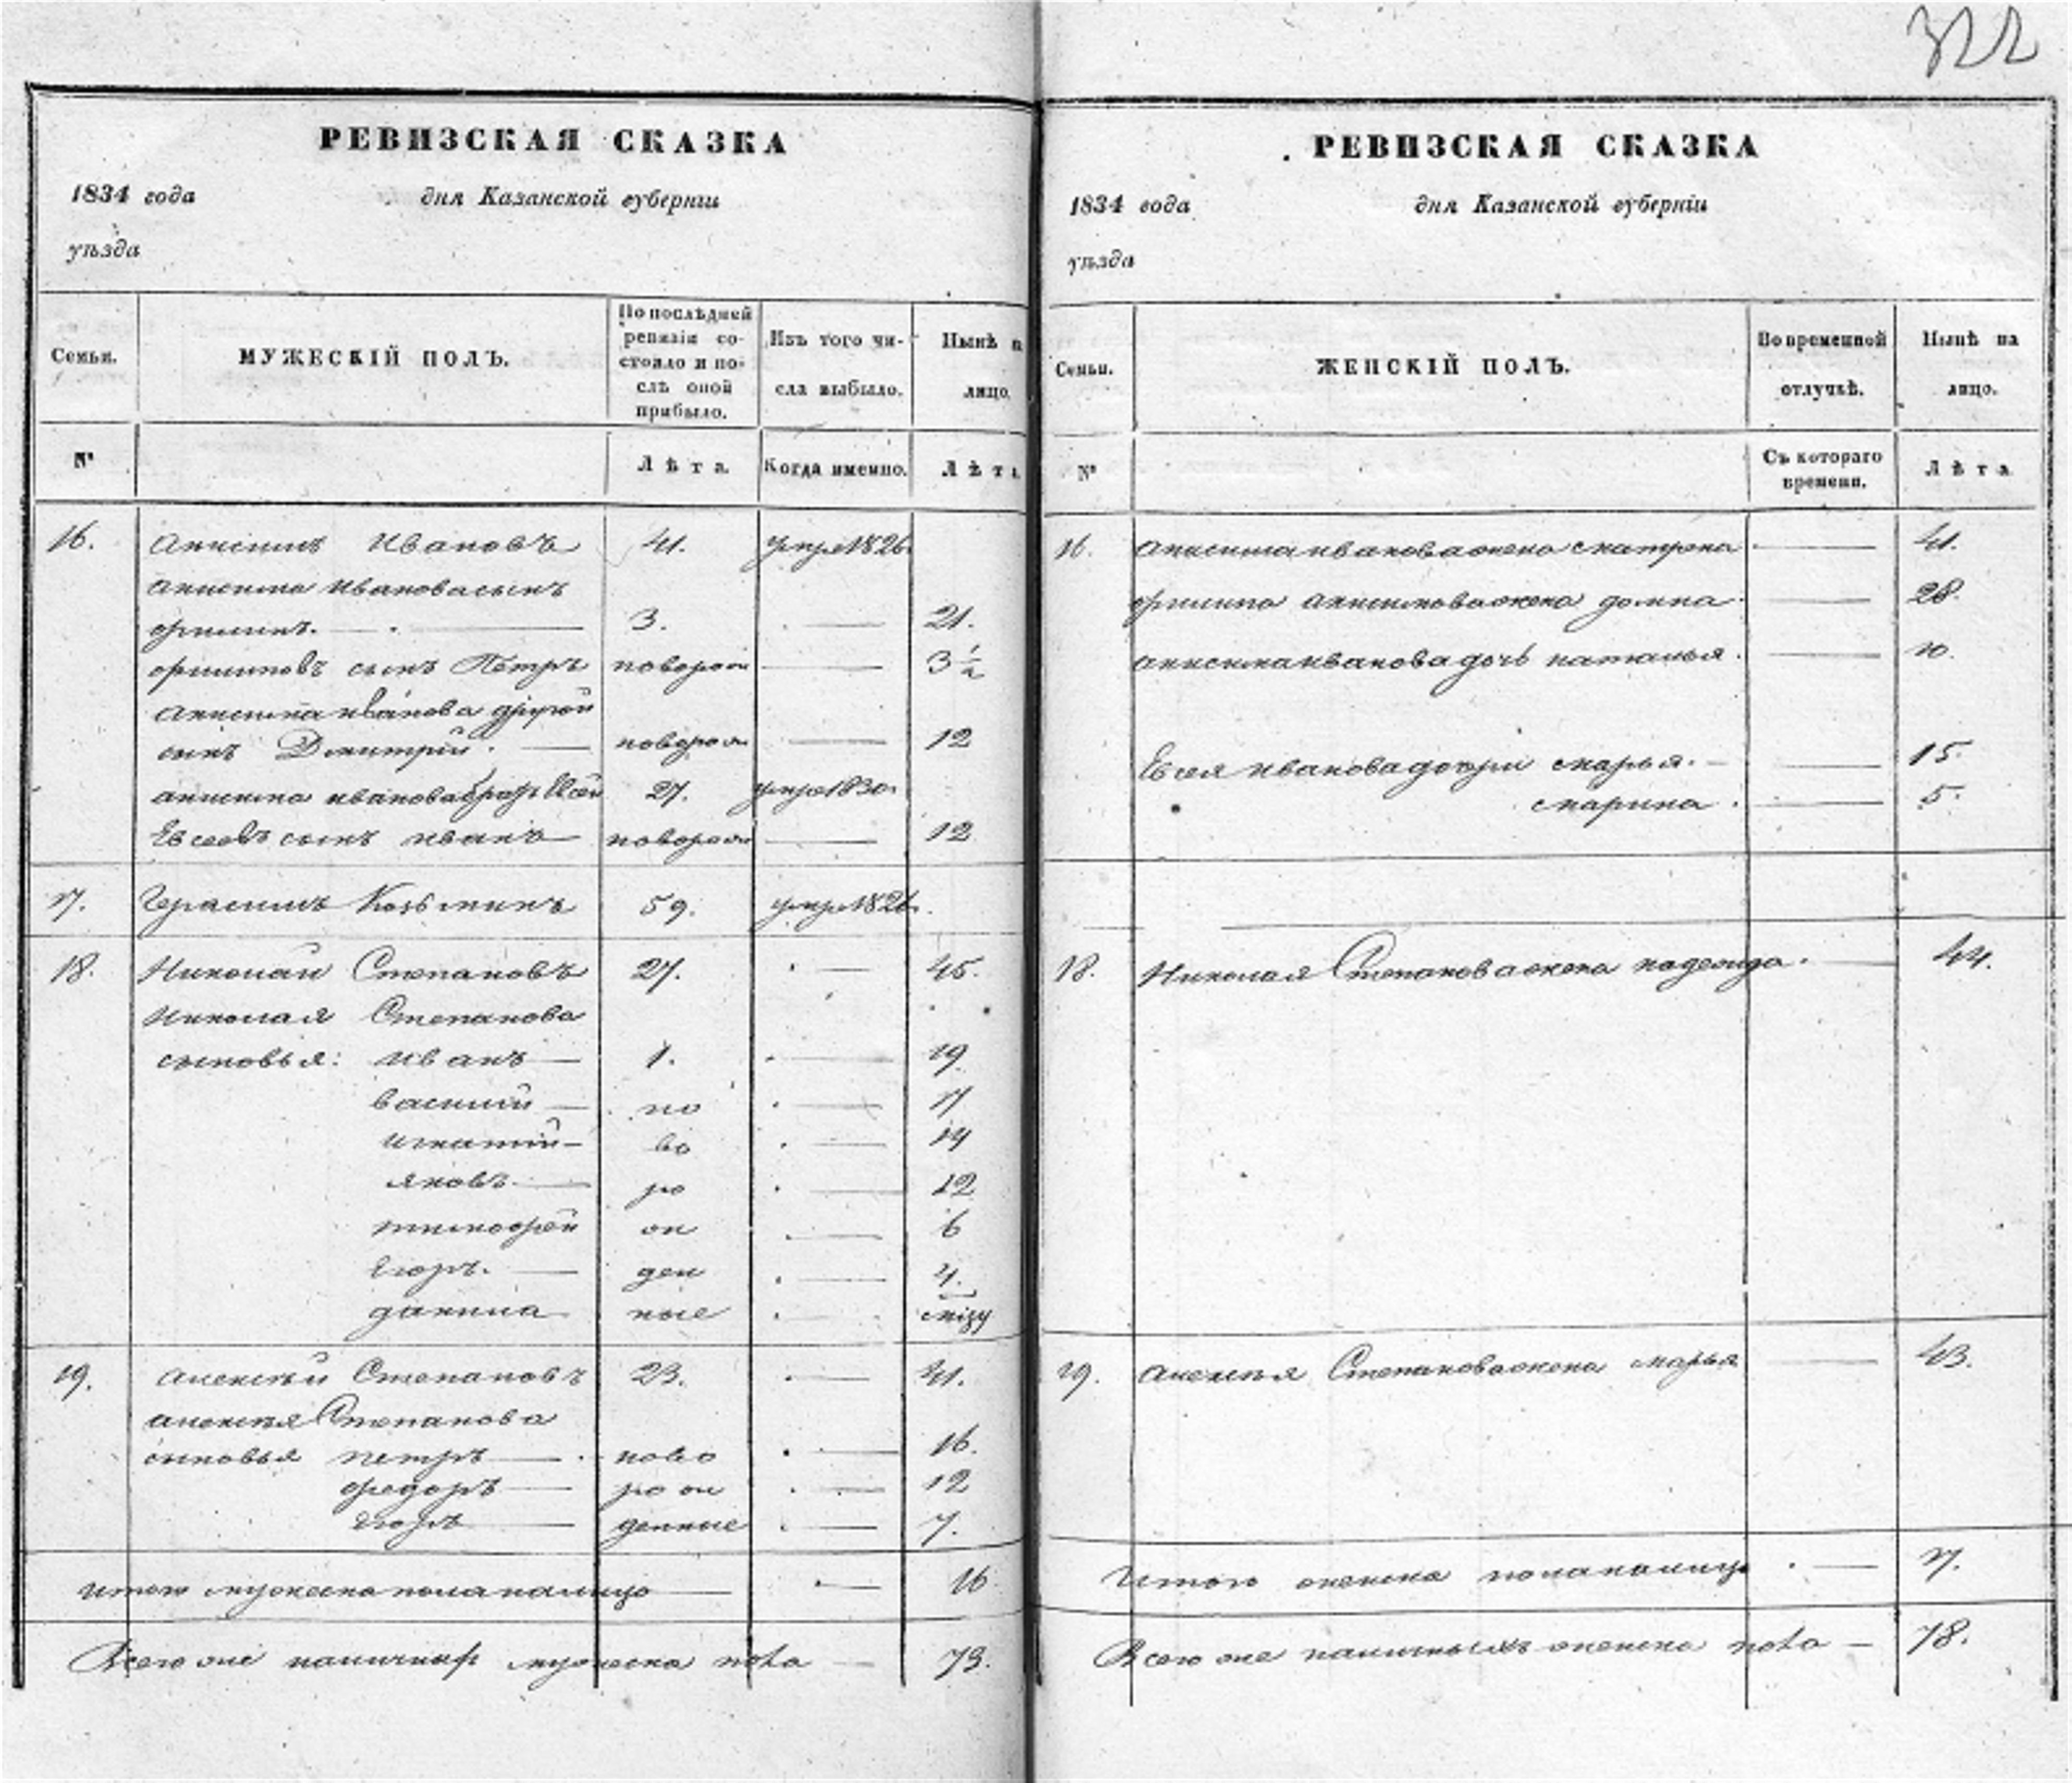 322
РЕВИЗСКАЯ СКАЗКА
1834 года дня Казанской губерніи
уѣзда
Семьи.
МУЖЕСКІЙ ПОЛЪ.
По послѣдней ревизіи состояло и послѣ оной прибыло.
Изъ того числа выбыло.
Нынѣ н лицо.
№
Лѣта.
Когда именно.
Лѣта
16. Анисимъ Ивановъ 41. умре 1826.
Анисима Иванова сынъ
Филипъ. 3. 21.
Филиповъ сынъ Петръ новорож 3 ½
Анисима Иванова другой
сынъ Дмитрій. новорож 12
Анисима Иванова братъ Евсей 27. умре 1830.
Евсеевъ сынъ Иванъ новорож 12
17. Герасимъ Козьминъ 59. умре 1826.
18. Николай Степановъ 27. 45.
Николая Степанова
сыновья: Иванъ 1. 19.
Василий но 17
Игнатий во 14
Яковъ ро 12
Тимофей ж 6
Егоръ. ден 4.
Данила ные
19. Алексѣй Степановъ 23. 41.
Алексѣя Степанова
сыновья Петръ ново 16.
Федоръ рож 12
Егоръ денные 7.
Итого мужеска пола налицо 16
Всего же наличных мужеска пола 73.
РЕВИЗСКАЯ СКАЗКА
1834 года дня Казанской губерніи
уѣзда
Семьи.
ЖЕНСКІЙ ПОЛЪ.
Во временной отлучкѣ.
Нынѣ на лицо.
№
Съ котораго времени.
Лѣта
16. Анисима Иванова жена Матрена 41.
Филипа Анисимова жена Домна 28.
Анисима Иванова дочь Наталья. 10.
Евсея Иванова дочери Марья. 15.
Марина. 5.
18. Николая Степанова жена Надежда. 44.
19. Алексѣя Степанова жена Марья 43.
Итого женска пола налицо 7.
Всего же наличныхъ женска пола 78.